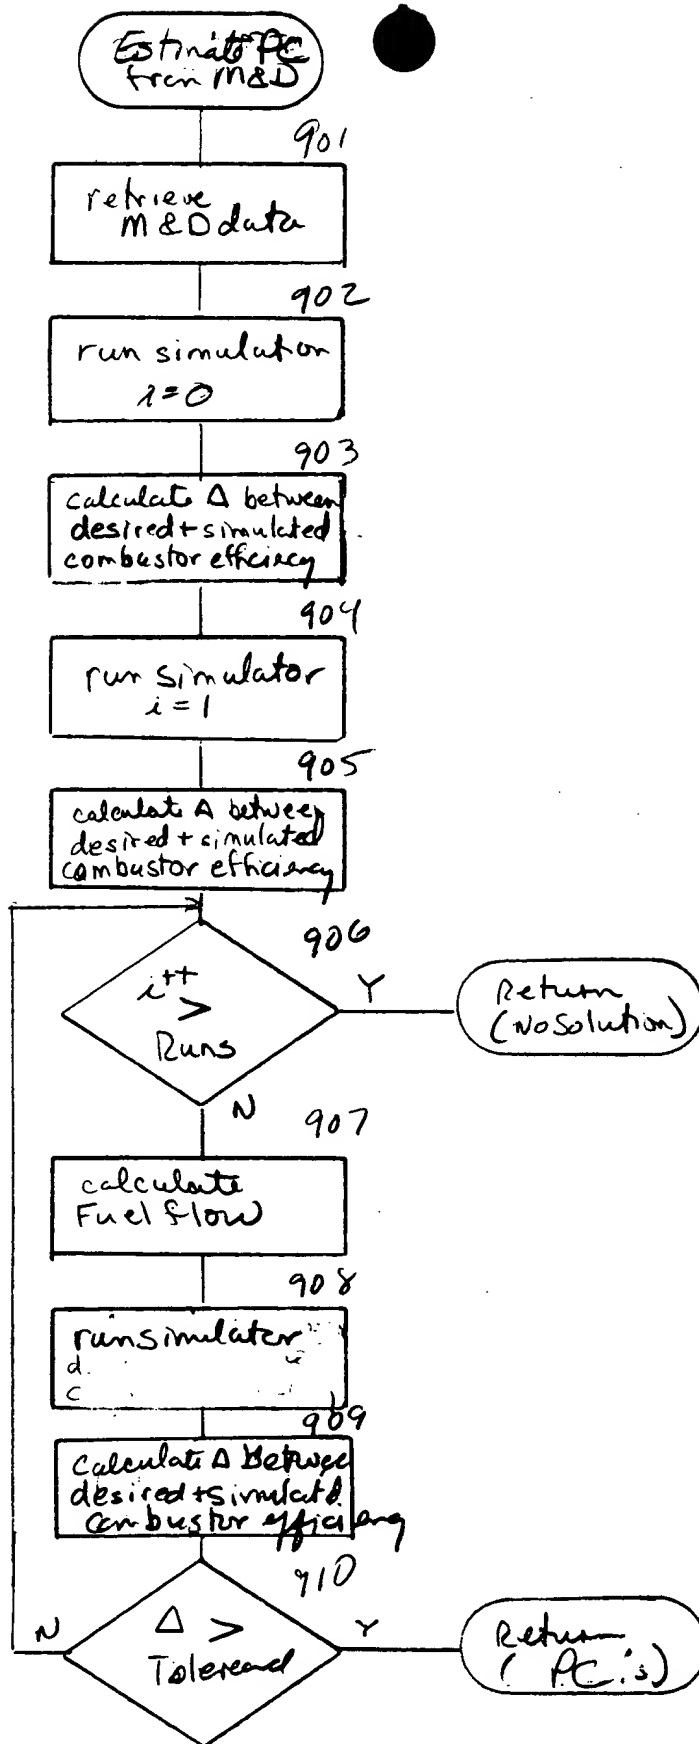 Estimate PC
from M&D
901
retrieve
M&D data
902
run simulation
i=0
903
calculate Δ between
desired + simulated
combustor efficiecy
904
run simulator
i = 1
905
calculate Δ between
desired + simulated
combustor efficiency
906
i++
>
Runs
Y
Return
(No Solution)
N
907
calculate
Fuel flow
908
run simulator
d
c
909
Calculate Δ Between
desired + simulatd
combustor efficiency
910
N
Δ >
Y
Return
( PC's)